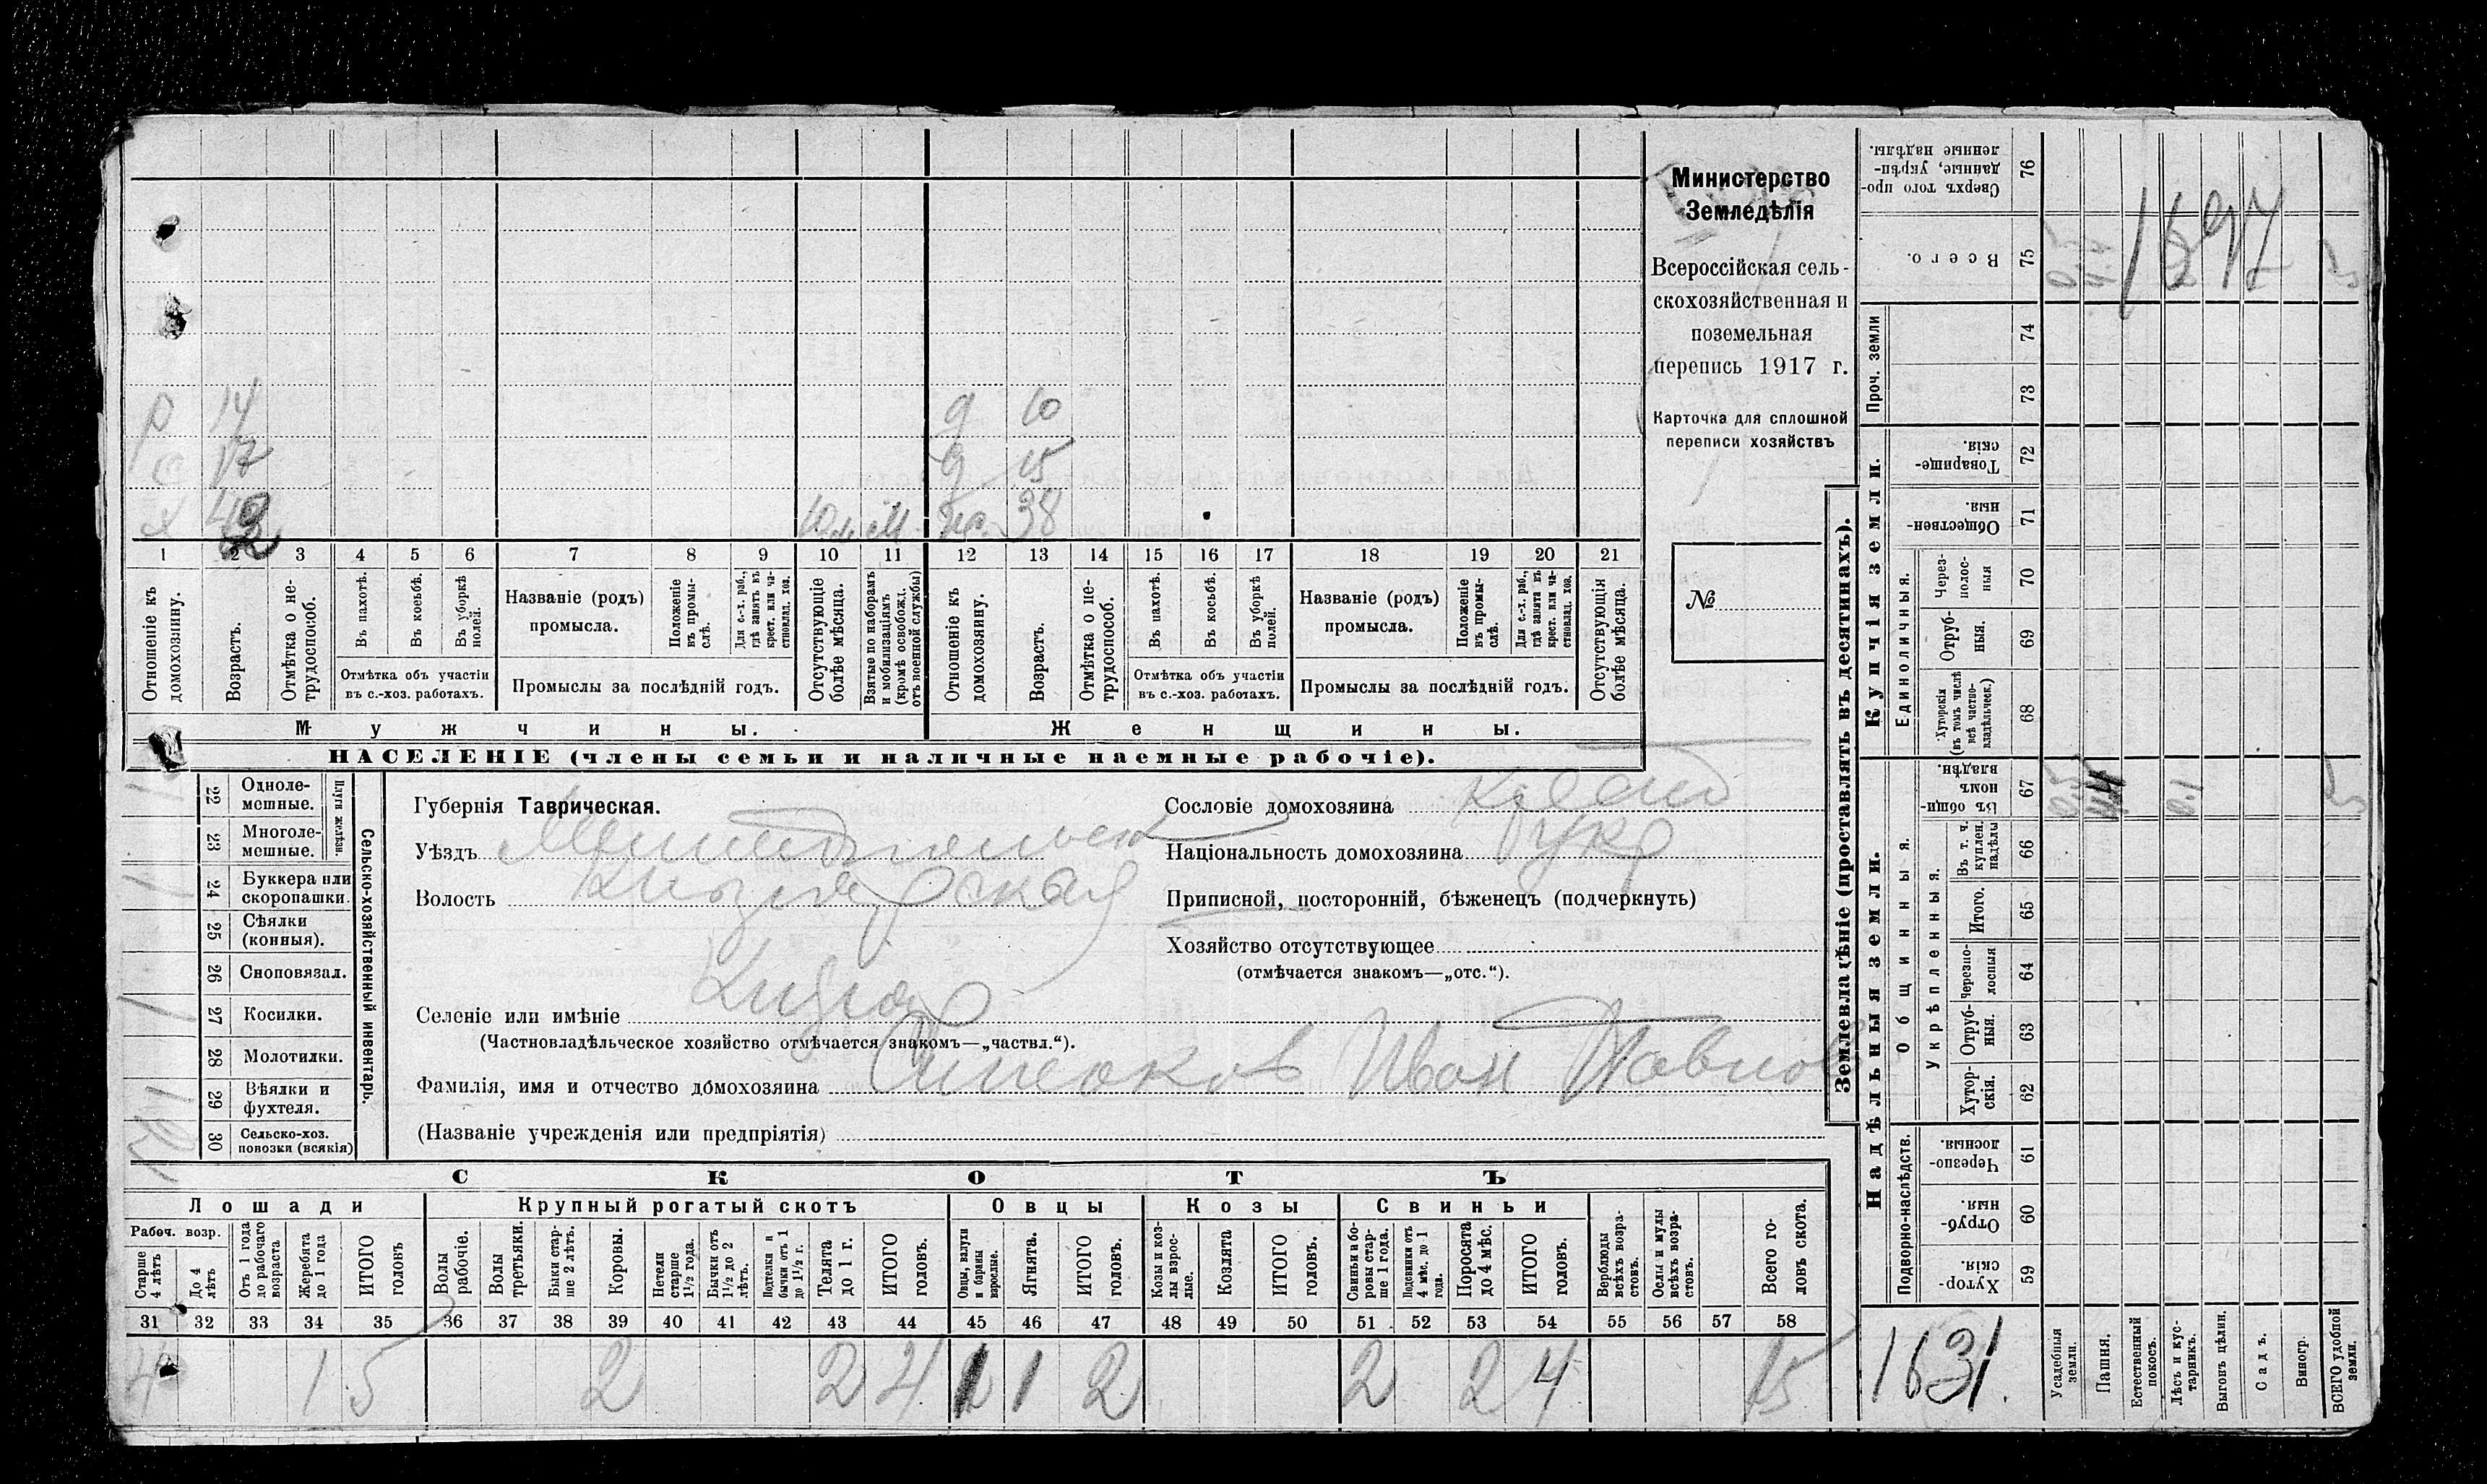 Министерство
Земледѣлія
Всероссійская сель-
скохозяйственная и
поземельная
перепись 1917 г.
Карточка для сплошной
переписи хозяйствъ
№
р 14 д 10
с 17 д 15
х 38
1 2 3 4 5 6 7 8 9 10 11 12 13 14 15 16 17 18 19 20 21
Отношеніе къ домохозяину.
Возрастъ.
Отмѣтка о не-трудоспособ.
Въ пахотѣ.
Въ косьбѣ.
Въ уборкѣ полей.
Отмѣтка объ участіи
въ с.-хоз. работахъ.
Названіе (родъ)
промысла.
Положеніе въ промы-слѣ.
Для с.-х. раб., гдѣ занятъ въ крест. или ча-стновлад. хоз.
Промыслы за послѣдній годъ.
Отсутствующіе болѣе мѣсяца.
Взятые по наборамъ и мобилизаціямъ (кромѣ освобожд. отъ военной службы)
Отношеніе къ домохозяину.
Возрастъ.
Отмѣтка о не-трудоспособ.
Въ пахотѣ.
Въ косьбѣ.
Въ уборкѣ полей.
Отмѣтка объ участіи
въ с.-хоз. работахъ.
Названіе (родъ)
промысла.
Положеніе въ промы-слѣ.
Для с.-х. раб., гдѣ занята въ крест. или ча-стновлад. хоз.
Промыслы за послѣдній годъ.
Отсутствующія болѣе мѣсяца.
Мужчины.
Женщины.
НАСЕЛЕНІЕ (члены семьи и наличные наемные рабочіе).
22 Одноле-мешные.
23 Многоле-мешные.
Плуги желѣзн.
24 Буккера или скоропашки.
25 Сѣялки (конныя).
26 Сноповязал.
27 Косилки.
28 Молотилки.
29 Вѣялки и фухтеля.
30 Сельско-хоз. повозки (всякія)
Сельско-хозяйственный инвентарь.
Губернія Таврическая.
Уѣздъ Мелитопольск
Волость Кизіярская
Селеніе или имѣніе Кизіяр
(Частновладѣльческое хозяйство отмѣчается знакомъ—„частвл.“).
Фамилія, имя и отчество домохозяина Иван Павлов
(Названіе учрежденія или предпріятія)
Сословіе домохозяина
Національность домохозяина
Приписной, посторонній, бѣженецъ (подчеркнуть)
Хозяйство отсутствующее
(отмѣчается знакомъ—„отс.“).
СКОТЪ
Лошади
Крупный рогатый скотъ
Овцы
Козы
Свиньи
Рабоч. возр.
Старше 4 лѣтъ
До 4 лѣтъ
Отъ 1 года до рабочаго возраста
Жеребята до 1 года
ИТОГО головъ
Волы рабочіе.
Волы третьяки.
Быки стар-ше 2 лѣтъ.
Коровы.
Нетели старше 1½ года.
Бычки отъ 1½ до 2 лѣтъ.
Подтелки и бычки отъ 1 до 1½ г.
Телята до 1 г.
ИТОГО головъ.
Овцы, валухи и бараны взрослые.
Ягнята.
ИТОГО головъ.
Козы и коз-лы взрос-лые.
Козлята
ИТОГО головъ.
Свиньи и бо-ровы стар-ше 1 года.
Подсвинки отъ 4 мѣс. до 1 года.
Поросята до 4 мѣс.
ИТОГО головъ.
Верблюды всѣхъ возра-стовъ.
Ослы и мулы всѣхъ возра-стовъ.
Всего го-ловъ скота.
31 32 33 34 35 36 37 38 39 40 41 42 43 44 45 46 47 48 49 50 51 52 53 54 55 56 57 58
4 1 5 2 2 4 1 1 2 2 2 4 15
Землевладѣніе (проставлять въ десятинахъ).
Сверхъ того про-данные, укрѣп-ленные надѣлы. 76
Всего. 75
Проч. земли
74
73
Купчія земли.
Товарище-скія. 72
Обществен-ныя 71
Единоличныя.
Через-полос-ныя 70
Отруб-ныя. 69
Хуторскія (въ томъ числѣ всѣ частно-владѣльческ.) 68
Надѣльныя земли.
Общинныя.
Въ общин-номъ владѣн. 67
Укрѣпленныя.
Въ т. ч. куплен. надѣлы 66
Итого. 65
Черезпо-лосныя 64
Отруб-ныя. 63
Хутор-скія. 62
Подворно-наслѣдств.
Черезпо-лосныя. 61
Отруб-ныя. 60
Хутор-скія. 59
1631.
Усадебныя земли.
Пашня.
Естественный покосъ.
Лѣсъ и кус-тарникъ.
Выгонъ цѣлин.
Садъ.
Виногр.
ВСЕГО удобной земли.